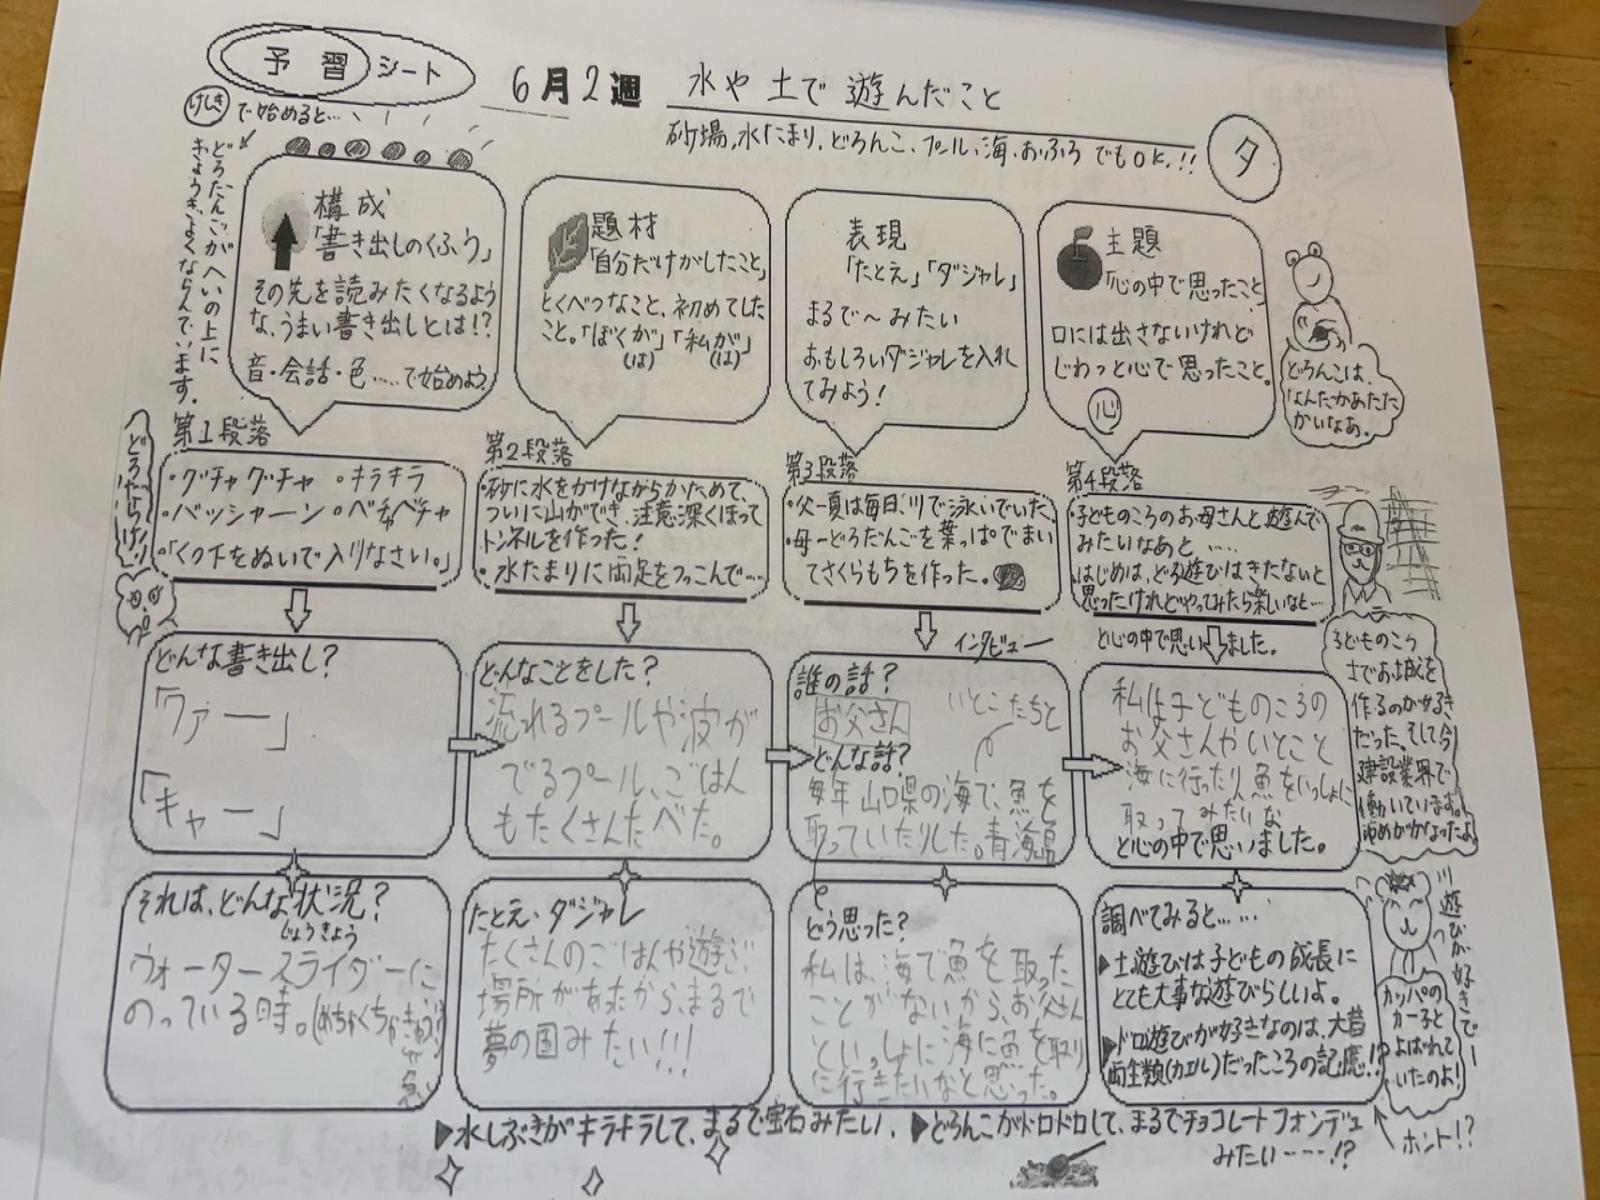 予習シート
6月2週 水や土で遊んだこと
砂場,水たまり,どろんこ,プール,海,おふろでもOK!!
夕
けしきで始めると…
どろだんごがへいの上に
ぎょうぎよくならんでいます。
構成
「書き出しのくふう」
その先を読みたくなるよう
な、うまい書き出しとは!?
音・会話・色……で始めよう。
題材
「自分だけがしたこと」
とくべつなこと、初めてした
こと。「ぼくが」「私が」
(は) (は)
表現
「たとえ」「ダジャレ」
まるで〜みたい
おもしろいダジャレを入れ
てみよう!
主題
「心の中で思ったこと」
口には出さないけれど
じわっと心で思ったこと。
心
どろんこは、
なんだかあたた
かいなあ。
どろやらけ!!
第1段落
・グチャグチャ ・キラキラ
・バッシャーン ・ベチャベチャ
・「くつ下をぬいで入りなさい。」
第2段落
・砂に水をかけながらかためて、
ついに山ができ、注意深くほって
トンネルを作った!
・水たまりに両足をつっこんで……
第3段落
・父ー夏は毎日、川で泳いでいた。
・母ーどろだんごを葉っぱでまい
てさくらもちを作った。
第4段落
・子どものころのお母さんと遊んで
みたいなあと……
はじめは、どろ遊びはきたないと
思ったけれどやってみたら楽しいなと…
と心の中で思いました。
どんな書き出し?
「ワァー」
「キャー」
どんなことをした?
流れるプールや波が
でるプール、ごはん
もたくさんたべた。
インタビュー
誰の話?
お父さん
いとこたちと
どんな話?
毎年山口県の海で、魚を
取っていたりした。青海島
私は子どものころの
お父さんやいとこと
海に行ったり、魚をいっしょに
取ってみたいな
と心の中で思いました。
子どものころ
土でお城を
作るのが好き
だった。そして今
建設業界で
働いています。
夢がかなったよ。
それは、どんな状況?
じょうきょう
ウォータースライダーに
のっている時。(めちゃくちゃきゅう!!)
急
たとえ・ダジャレ
たくさんのごはんや遊ぶ
場所があったから、まるで
夢の国みたい!!!
どう思った?
私は、海で魚を取った
ことがないから、お父さん
といっしょに海に魚を取り
に行きたいなと思った。
調べてみると……
▶土遊びは子どもの成長に
とても大事な遊びらしいよ。
▶ドロ遊びが好きなのは、大昔
両生類(カエル)だったころの記憶!?
川遊びが好きでー
カッパの
カー子と
よばれて
いたのよ!
ホント!?
▶水しぶきがキラキラして、まるで宝石みたい。
▶どろんこがドロドロして、まるでチョコレートフォンデュ
みたい……!?